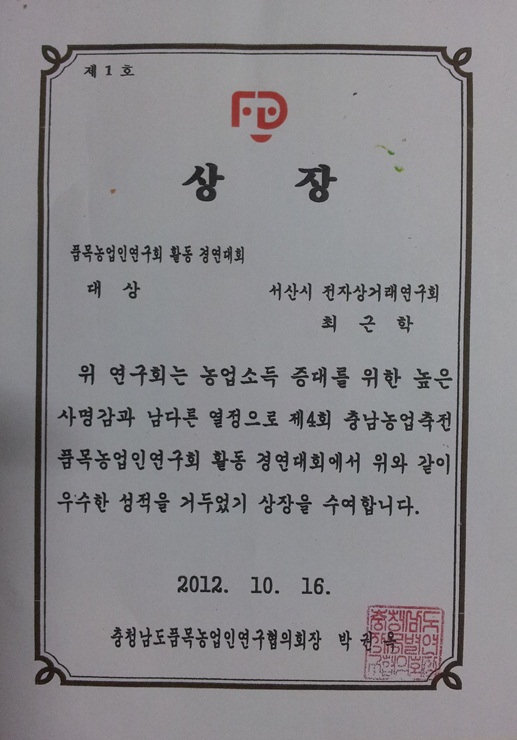 제 1 호
FD
상 장
품목농업인연구회 활동 경연대회
대 상
서산시 전자상거래연구회
최 근 학
위 연구회는 농업소득 증대를 위한 높은
사명감과 남다른 열정으로 제4회 충남농업축전
품목농업인연구회 활동 경연대회에서 위와 같이
우수한 성적을 거두었기 상장을 수여합니다.
2012. 10. 16.
충청남도품목농업인연구협의회장 박 권